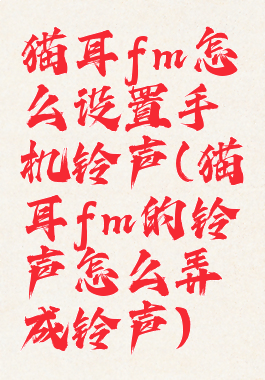 猫耳fm怎
么设置手
机铃声(猫
耳fm的铃
声怎么弄
成铃声)